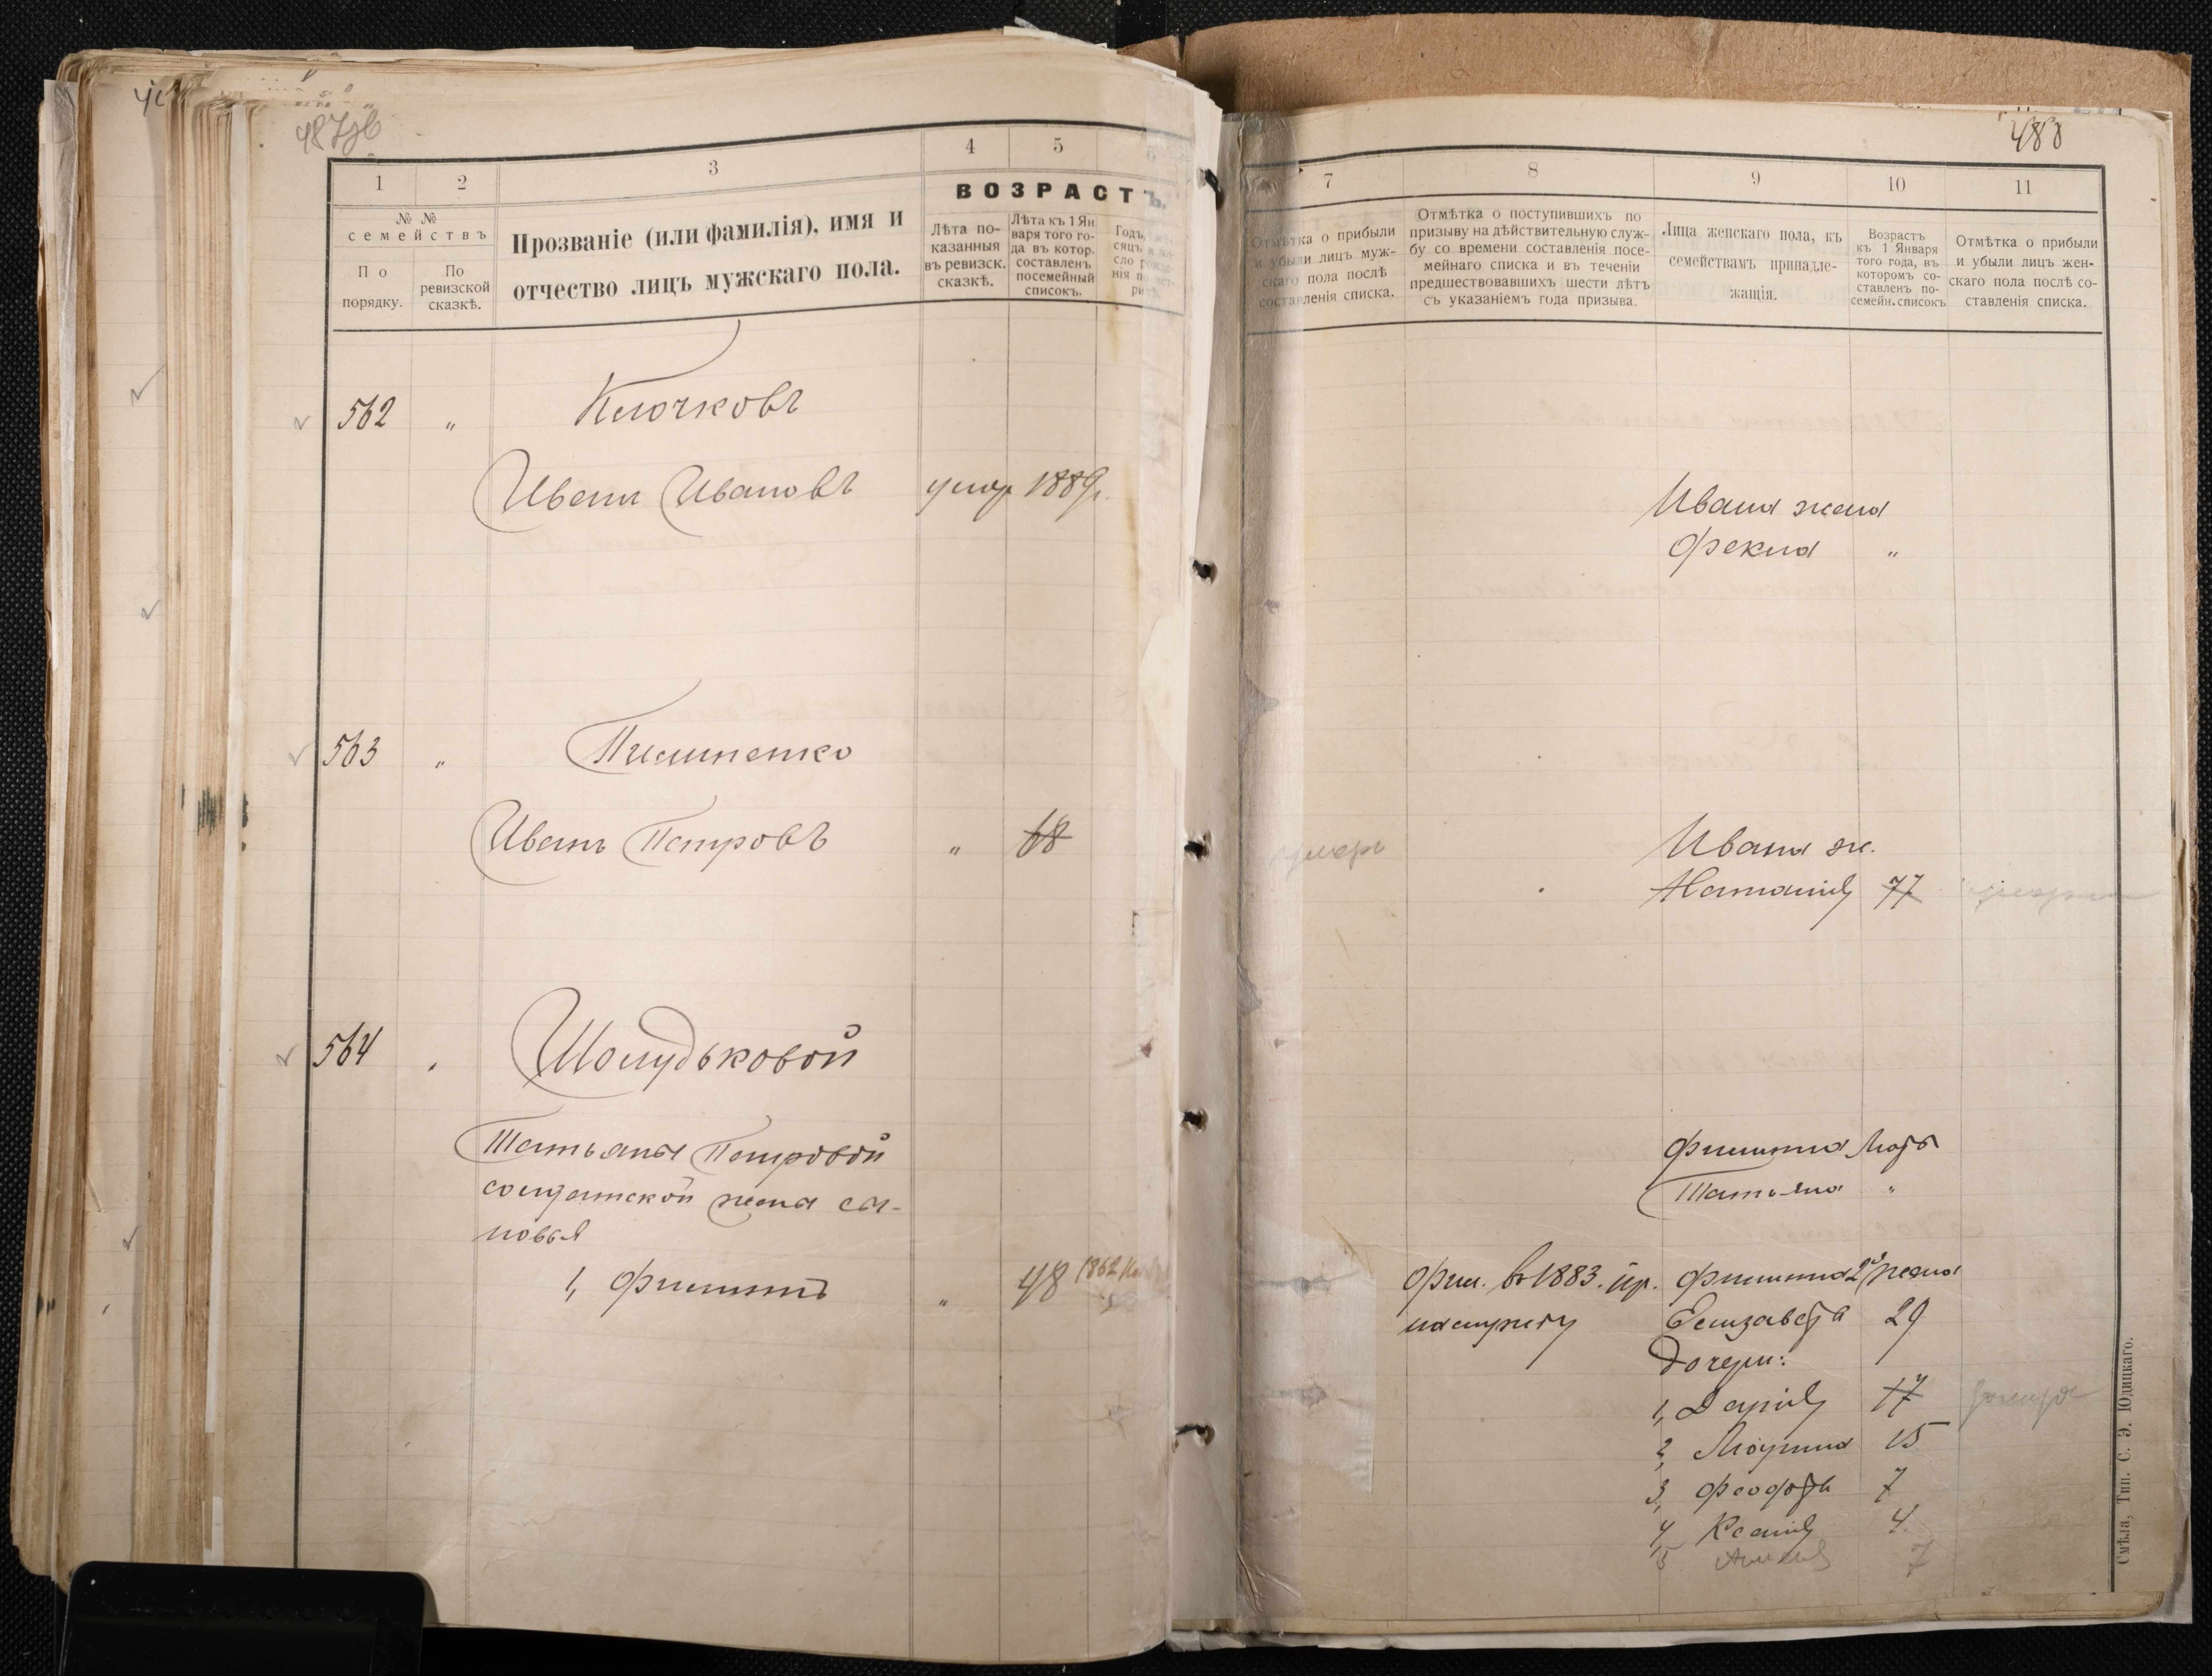 487об
1
2
3
4
5
6
ВОЗРАСТЪ.
№ №
семействъ
По
порядку.
По
ревизской
сказкѣ.
Прозваніе (или фамилія), имя и
отчество лицъ мужскаго пола.
Лѣта по-
казанныя
въ ревизск.
сказкѣ.
Лѣта къ 1 Ян
варя того го-
да въ котор.
составленъ
посемейный
списокъ.
Годъ,
562 „ Клочковъ
Иванъ Ивановъ умер 1889г.
563 „ Пилипенко
Иванъ Петровъ „ 68
564 Шолудьковой
Татьяны Петровой
солдатской жена сы-
новья
1, Филиппъ „ 48 1862
488
7
8
9
10
11
Отмѣтка о прибыли
и убыли лицъ муж-
скаго пола послѣ
составленія списка.
Отмѣтка о поступившихъ по
призыву на дѣйствительную служ-
бу со времени составленія посе-
мейнаго списка и въ теченіи
предшествовавшихъ шести лѣтъ
съ указаніемъ года призыва.
Лица женскаго пола, къ
семействамъ принадле-
жащія.
Возрастъ
къ 1 Января
того года, въ
которомъ со-
ставленъ по-
семейн. списокъ
Отмѣтка о прибыли
и убыли лицъ жен-
скаго пола послѣ со-
ставленія списка.
Ивана жена
Фекла „
умеръ
Ивана ж.
Наталія 77 умерла
Филиппа Мать
Татьяна „
Фил. въ 1883. пр. Филиппа 2я жена
на службу Елизавета 29
Дочери:
1, Дарія 17 замуж
2, Марина 15
3, Феодора 7
4, Ксенія 4.
5 7
Смѣла, Тип. С. Э. Юдицкаго.